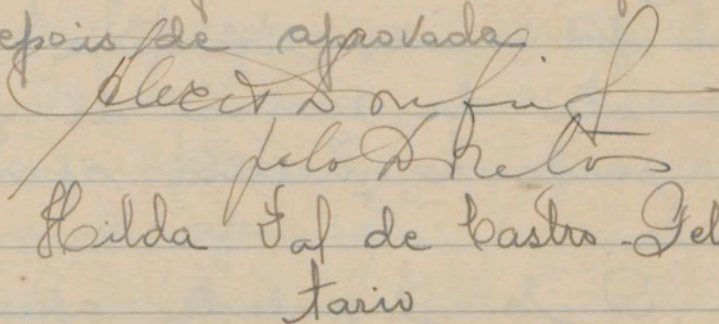 epois de aprovada
pelo Diretor
Hilda Fal de Castro - Sel
tario